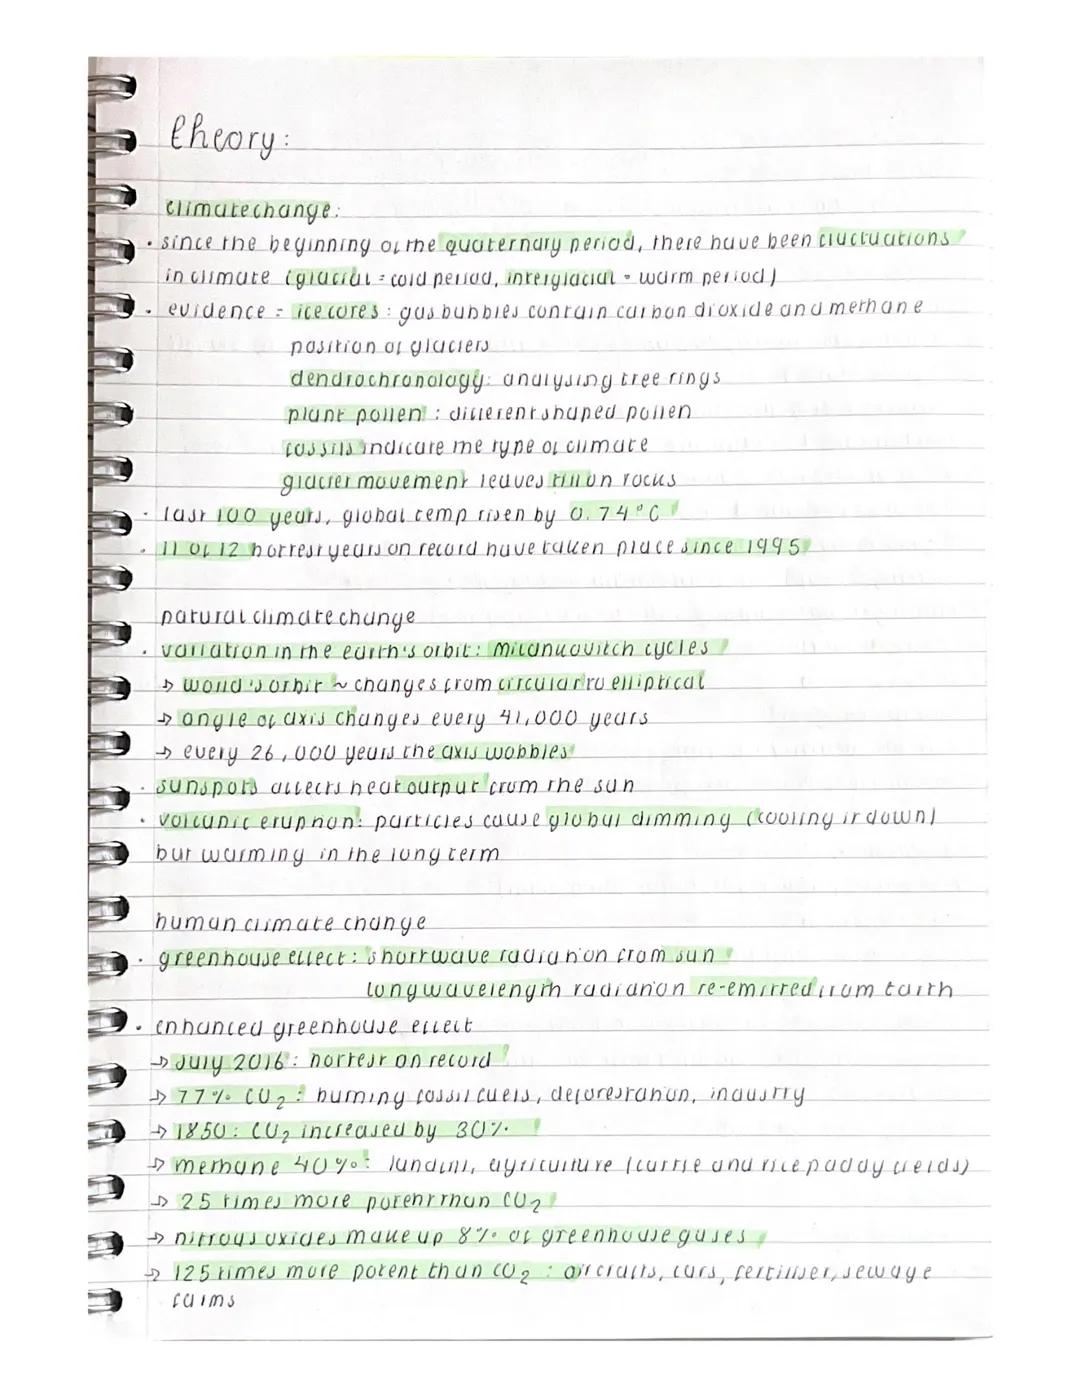 theory:
climate change:
• since the beginning of the quaternary period, there have been fluctuations
in climate (glacial = cold period, interglacial = warm period)
• evidence = ice cores : gas bubbles contain carbon dioxide and methane
position of glaciers
dendrochronology: analysing tree rings
plant pollen : different shaped pollen
fossils indicate the type of climate
glacier movement leaves till on rocks
• last 100 years, global temp risen by 0.74°C
• 11 of 12 hottest years on record have taken place since 1995
natural climate change
• variation in the earth's orbit: Milankovitch cycles
→ world's orbit ~ changes from circular to elliptical
→ angle of axis changes every 41,000 years
→ every 26,000 years the axis wobbles
• sunspots affects heat output from the sun
• volcanic eruption: particles cause global dimming (cooling it down)
but warming in the long term
human climate change
• greenhouse effect: shortwave radiation from sun
long wavelength radiation re-emitted from Earth
• enhanced greenhouse effect
→ July 2016 : hottest on record
→ 77% CO₂ : burning fossil fuels, deforestation, industry
→ 1850 : CO₂ increased by 30%
→ methane 40% : landfill, agriculture (cattle and rice paddy fields)
→ 25 times more potent than CO₂
→ nitrous oxides make up 8% of greenhouse gases
→ 125 times more potent than CO₂ : aircrafts, cars, fertiliser, sewage
farms